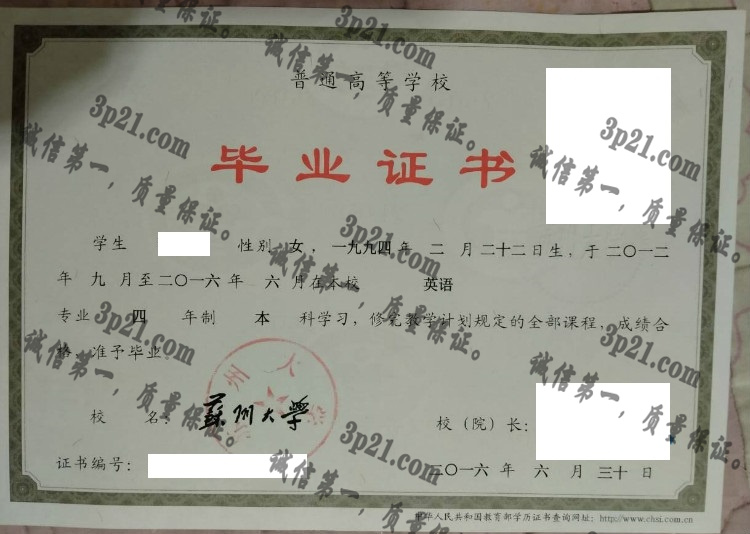 普通高等学校
毕业证书
学生 性别 女，一九九四年 二 月二十二日生，于二〇一二
年 九 月至二〇一六年 六 月在本校 英语
专业 四 年制 本 科学习，修完教学计划规定的全部课程，成绩合
格，准予毕业。
校 名：蘇州大學
校（院）长：
证书编号：
二〇一六年 六 月 三十日
中华人民共和国教育部学历证书查询网址：http://www.chsi.com.cn
3p21.com
诚信第一，质量保证。
3p21.com
诚信第一，质量保证。
3p21.com
诚信第一，质量保证。
3p21.com
诚信第一，质量保证。
3p21.com
诚信第一，质量保证。
3p21.com
诚信第一，质量保证。
3p21.com
诚信第一，质量保证。
3p21.com
诚信第一，质量保证。